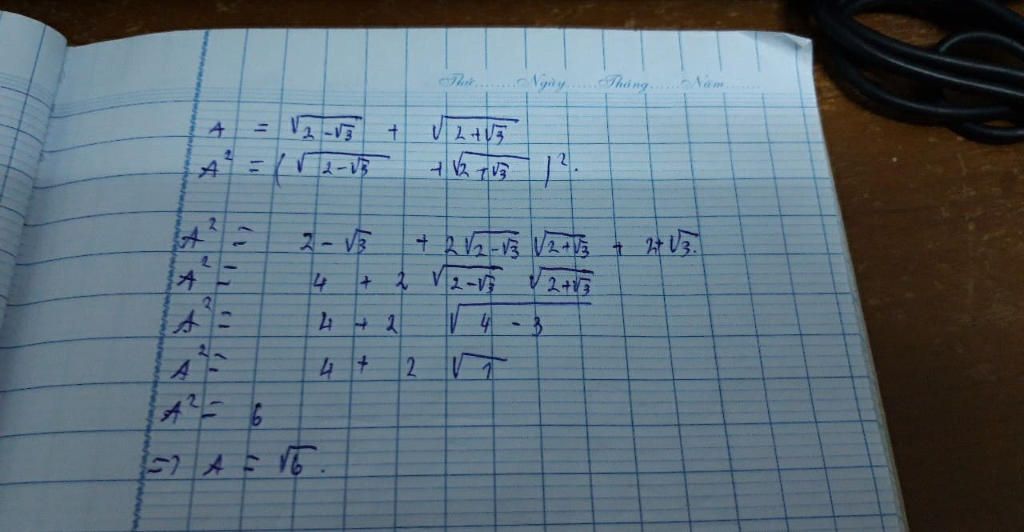 Thứ........Ngày......Tháng......Năm........
A = √(2-√3) + √(2+√3)
A² = (√(2-√3) + √(2+√3))².
A² = 2-√3 + 2√(2-√3) √(2+√3) + 2+√3.
A² = 4 + 2 √(2-√3) √(2+√3)
A² = 4 + 2 √(4-3)
A² = 4 + 2 √1
A² = 6
=> A = √6.